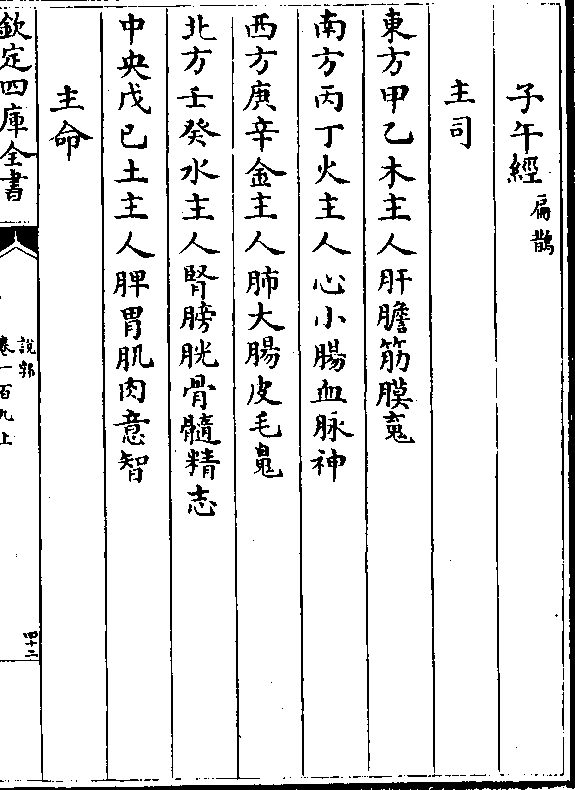 子午經 扁鵲
主司
東方甲乙木主人肝膽筋膜䰟
南方丙丁火主人心小腸血脉神
西方庚辛金主人肺大腸皮毛䰟
北方壬癸水主人腎膀胱骨髓精志
中央戊己土主人脾胃肌肉意智
主命
欽定四庫全書
說郛
卷一百九上
四十二